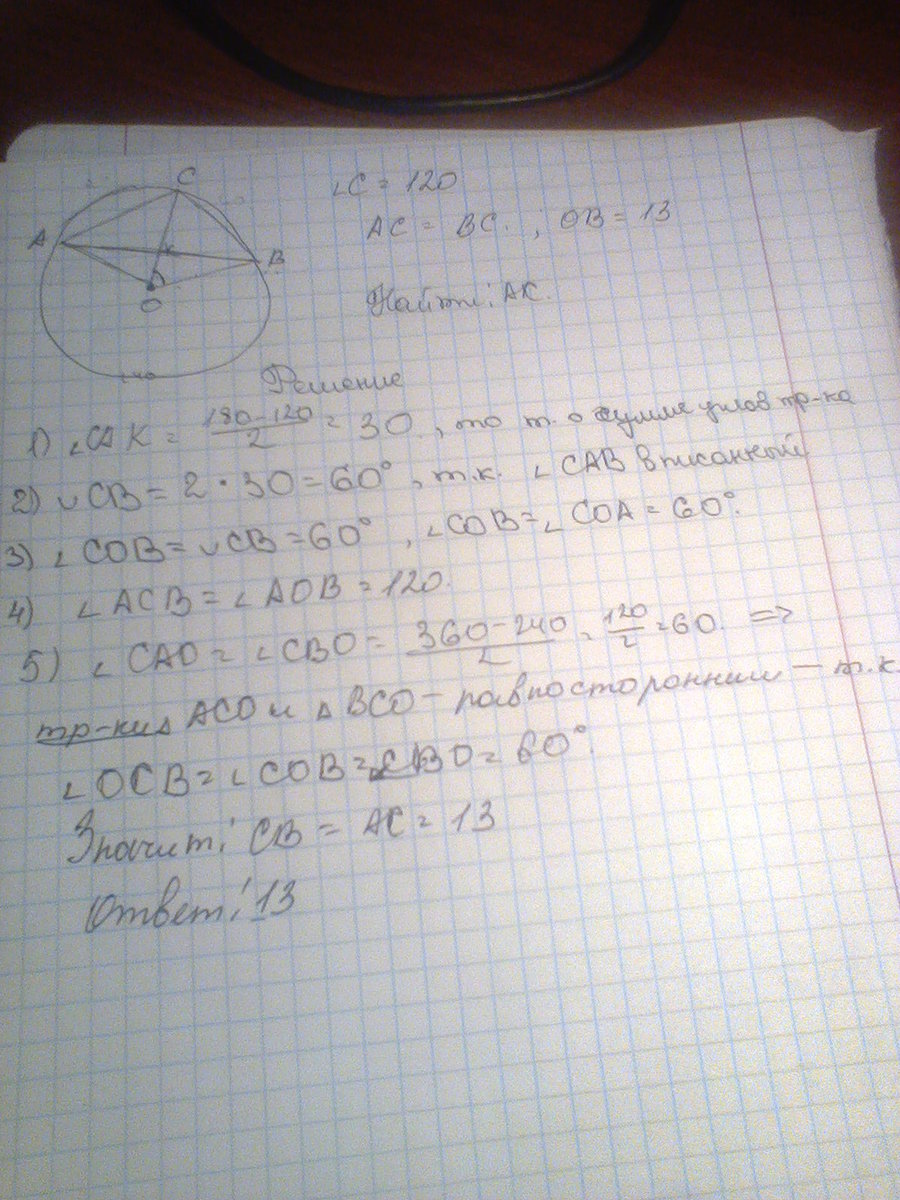 C
∠C = 120
A
AC = BC. ; OB = 13
K
B
O
Найти: AK.
Решение
1) ∠CAK = (180-120)/2 = 30, по т. о сумме углов тр-ка
2) ◡CB = 2 · 30 = 60°, т.к. ∠CAB вписанный
3) ∠COB = ◡CB = 60°, ∠COB = ∠COA = 60°.
4) ∠ACB = ∠AOB = 120.
5) ∠CAO = ∠CBO = (360-240)/2 = 120/2 = 60. =>
тр-ки △ ACO и △ BCO - равносторонним - т.к.
∠OCB = ∠COB = ∠CBO = 60°.
Значит: CB = AC = 13
Ответ: 13